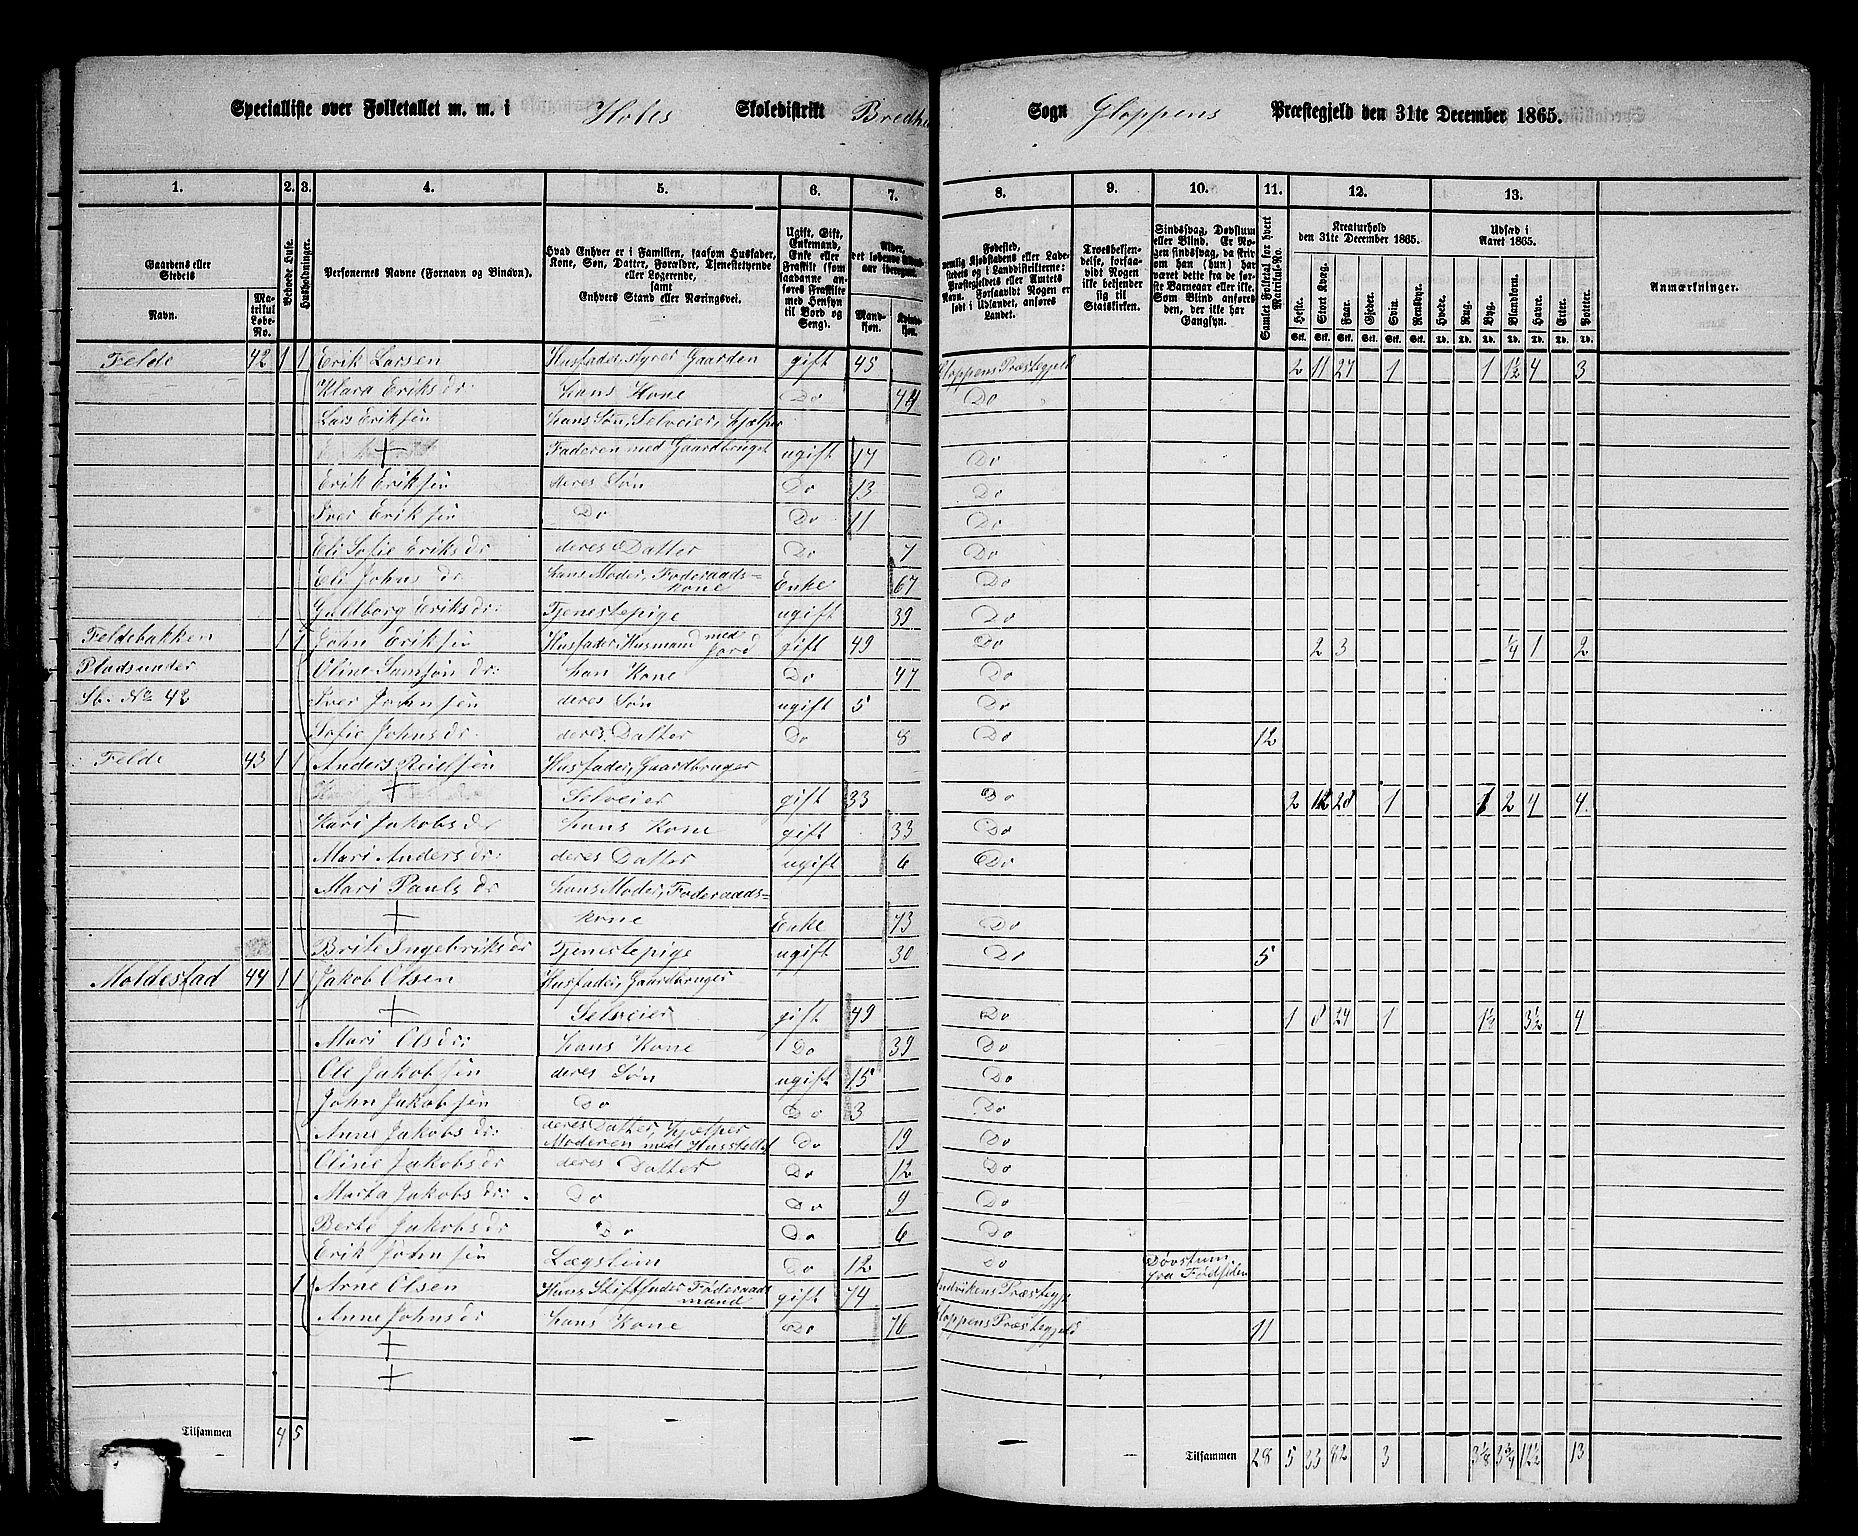 Specialliste over Folketallet m. m. i Hobes Skoledistrikt Bredhe Sogn Gloppens Præstegjeld den 31te December 1865.
1. 2. 3. 4. 5. 6. 7. 8. 9. 10. 11. 12. 13.
Gaardens eller Stedets Navn. Matrikul Løbe-No. Beboede Huse. Husholdninger. Personernes Navne (Fornavn og Binavn). Hvad Enhver er i Familien, saasom Husfader, Kone, Søn, Datter, Forældre, Tjenestetyende eller Logerende, samt Enhvers Stand eller Næringsvei. Anmærkninger.
Kreaturhold den 31te December 1865. Udsæd i Aaret 1865.
Heste. Stort Kvæg. Faar. Gjeder. Svin. Rensdyr. Hvede. Rug. Byg. Blandkorn. Havre. Erter. Poteter.
Felde 42 1 1 Erik Larsen Husfader, styrer Gaarden gift 45 Gloppens Præstegjeld 2 11 27 1 1 1½ 4 3
Klara Eriks dr hans Kone Do 44 Do
Lars Eriksen hans Søn, Selveier, hjælper
+ Faderen med Gaardbruget ugift 17 Do
Erik Eriksen deres Søn Do 13 Do
Iver Eriksen Do Do 11 Do
Eli Sofie Eriks dr deres Datter Do 7 Do
Eli Johns dr hans Moder, Føderaads= kone Enke 67 Do
Guldborg Eriks dr: Tjenestepige ugift 39 Do
Feldebakken 1 1 John Eriksen Husfader, Husmand med Jord gift 49 Do 2 3 ¼ 1 2
Pladsunder Oline Samson dr: han Kone Do 47 Do
Lb. No 42 Iver Johnsen deres Søn ugift 5 Do
Sofie Johns dr. deres Datter Do 8 Do 12
Felde 43 1 1 Anders Reielsen Husfader, Gaardbruger
+ Selveier gift 33 Do 2 12 28 1 1 2 4 4
Kari Jakobs dr hans Kone gift 33 Do
Mari Anders dr: deres Datter ugift 6 Do
Mari Pauls dr hans Moder, Føderaads=
+ kone Enke 73 Do
Brite Ingebriks dr Tjenestepige ugift 30 Do 5
Moldestad 44 1 1 Jakob Olsen Husfader, Gaardbruger
+ Selveier gift 49 Do 1 8 24 1 3½ 4
Mari Ols dr: hans Kone Do 39 Do
Ole Jakobsen deres Søn ugift 15 Do
John Jakobsen Do Do 3 Do
Anne Jakobs dr: deres Datter, hjælper Moderen med Husstellet Do 19 Do
Oline Jakobs dr deres Datter Do 12 Do
Marta Jakobs dr: Do Do 9 Do
Berte Jakobs dr Do Do 6 Do
Erik Johnsen Lægslem Do 12 Do Døvstum fra Fødselen
1 Arne Olsen Hans Stiffader Føderaads mand gift 74 Indvikens Præstegj
Anne Johns dr hans Kone Do 76 Gloppens Præstegjeld 11
+
+
Tilsammen 4 5 Tilsammen 28 5 33 82 3 3⅛ 3¾ 12½ 13